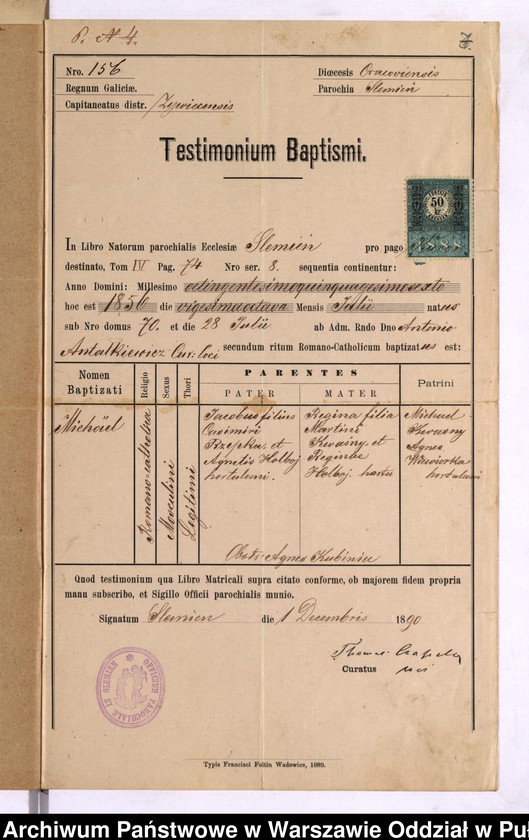 P. N 4.
Nro. 156
Diœcesis Cracoviensis
Regnum Galiciæ.
Parochia Slemień
Capitaneatus distr. Żyviecensis
Testimonium Baptismi.
50
kr
1888
In Libro Natorum parochialis Ecclesiæ Slemień pro pago
destinato, Tom IV Pag. 74 Nro ser. 8. sequentia continentur:
Anno Domini: Millesimo octingentesimoquinquagesimosexto
hoc est 1856 die vigesimaoctava Mensis Julii natus
sub Nro domus 70. et die 28 Julii ab Adm. Rndo Dno Antonio
Antałkiewicz Cur. loci secundum ritum Romano-Catholicum baptizatus est:
Nomen Baptizati
Religio
Sexus
Thori
PARENTES
PATER
MATER
Patrini
Michaël
Romano-catholica
Masculini
Legitimi
Jacobus filius
Casimiri
et
Agnetis Holboj
hortulani.
Regina filia
Martini
Kwaśny et
Reginae
Holboj
Michael
Kwasny
Agnes
Wiewiorka
hortulani
Obstr: Agnes Kubiniec
Quod testimonium qua Libro Matricali supra citato conforme, ob majorem fidem propria
manu subscribo, et Sigillo Officii parochialis munio.
Signatum Slemien die 1 Decembris 1890
Thomas
Curatus loci
OFFICIUM PAROCHIALE IN SLEMIEN
Typis Francisci Foltin Wadowice, 1889.
Archiwum Państwowe w Warszawie Oddział w Pu